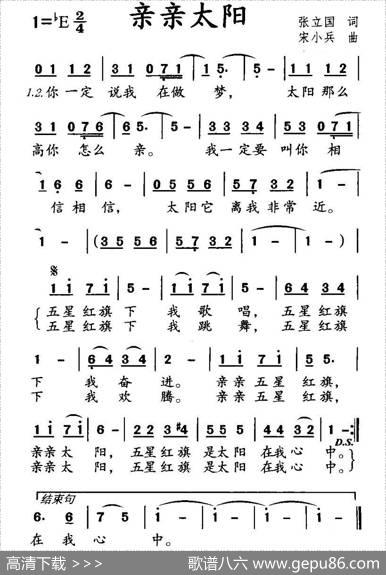 亲亲太阳
1=♭E 2/4
张立国 词
宋小兵 曲
01 12 | 31 071 | 1 5. | 5 - | 11 12 |
1.2.你一定 说我 在做 梦， 太阳那么
31 076 | 65. | 5 - | 33 34 | 53 071 |
高你 怎么 亲。 我一定要 叫你 相
1 6 6 | 6 - | 05 56 | 57 32 | 1 - |
信相信， 太阳它 离我非常 近。
1 - | (35 56 | 57 32 | 1 - | 1 -) |
1i 7i | 5 - | 1i 7i | 5 - | 64 34 |
五星红旗 下 我歌 唱，五星红旗
五星红旗 下 我跳 舞，五星红旗
1 - | 64 34 | 2 - | 1i 7i | 55. |
下 我奋 进。 亲亲五星 红旗，
下 我欢 腾。 亲亲五星 红旗，
1i 7i | 6 - | 22 3#4 | 55 5 | 22 32 | 1 - :||
D.S.
亲亲太 阳，五星红旗 是太阳 在我心 中。
亲亲太 阳，五星红旗 是太阳 在我心 中。
结束句
6. 6 | 7 5 | 1 - | 1 - | 1 - | 1 - ||
在我 心 中。
高清下载 >>>
歌谱八六 www.gepu86.com